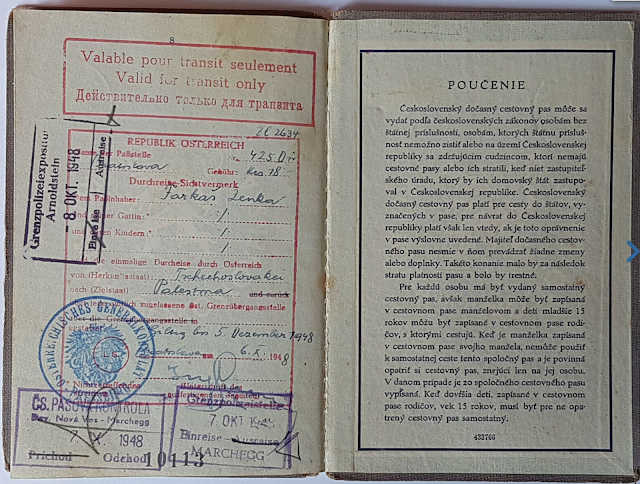 8
Valable pour transit seulement
Valid for transit only
Действительно только для транзита
REPUBLIK ÖSTERREICH
Name der Paßstelle
Nr. 425 D
Gebühr: Kčs 18.-
Durchreise-Sichtvermerk
Dem Paßinhaber: Farkas Lenka
seiner Gattin: /.
und seinen Kindern: /.
die einmalige Durchreise durch Österreich
von (Herkunftsstaat): Tschechoslowakei
nach (Zielstaat): Palestina und zurück
zugelassene öst. Grenzübergangsstelle
die Grenzübergangsstelle in
gültig bis 5 Dezember 1948
am 6.X. 1948
ÖSTERREICHISCHES GENERALKONSULAT
L.S.
Nichtzutreffendes
(Unterschrift des
ausfertigenden Beamten)
Grenzpolizeiexpositur
Arnoldstein
- 8. OKT. 1948
Einreise - Ausreise
ČS. PASOVÁ KONTROLA
Dev. Nová Ves - Marchegg
1948
Príchod Odchod
10113
Grenzpolizeistelle
7. OKT 1948
Einreise - Ausreise
MARCHEGG
POUČENIE
Československý dočasný cestovný pas môže sa
vydať podľa československých zákonov osobám bez
štátnej príslušnosti, osobám, ktorých štátnu prísluš-
nosť nemožno zistiť alebo na území Československej
republiky sa zdržujúcim cudzincom, ktorí nemajú
cestovné pasy alebo ich stratili, keď niet zastupiteľ-
ského úradu, ktorý by ich domovský štát zastupo-
val v Československej republike. Československý
dočasný cestovný pas platí pre cesty do štátov, vy-
značených v pase, pre návrat do Československej
republiky platí však len vtedy, ak je toto oprávnenie
v pase výslovne uvedené. Majiteľ dočasného cestov-
ného pasu nesmie v ňom prevádzať žiadne zmeny
alebo doplnky. Takéto konanie malo by za následok
stratu platnosti pasu a bolo by trestné.
Pre každú osobu má byť vydaný samostatný
cestovný pas, avšak manželka môže byť zapísaná
v cestovnom pase manželovom a deti mladšie 15
rokov môžu byť zapísané v cestovnom pase rodi-
čov, s ktorými cestujú. Keď je manželka zapísaná
v cestovnom pase svojho manžela, nemôže použiť
k samostatnej ceste tento spoločný pas a je povinná
opatriť si cestovný pas, znejúci len na jej osobu.
V danom prípade je zo spoločného cestovného pasu
vypísaná. Keď dovŕšia deti, zapísané v cestovnom
pase rodičov, vek 15 rokov, musí byť pre ne opa-
trený cestovný pas samostatný.
433766